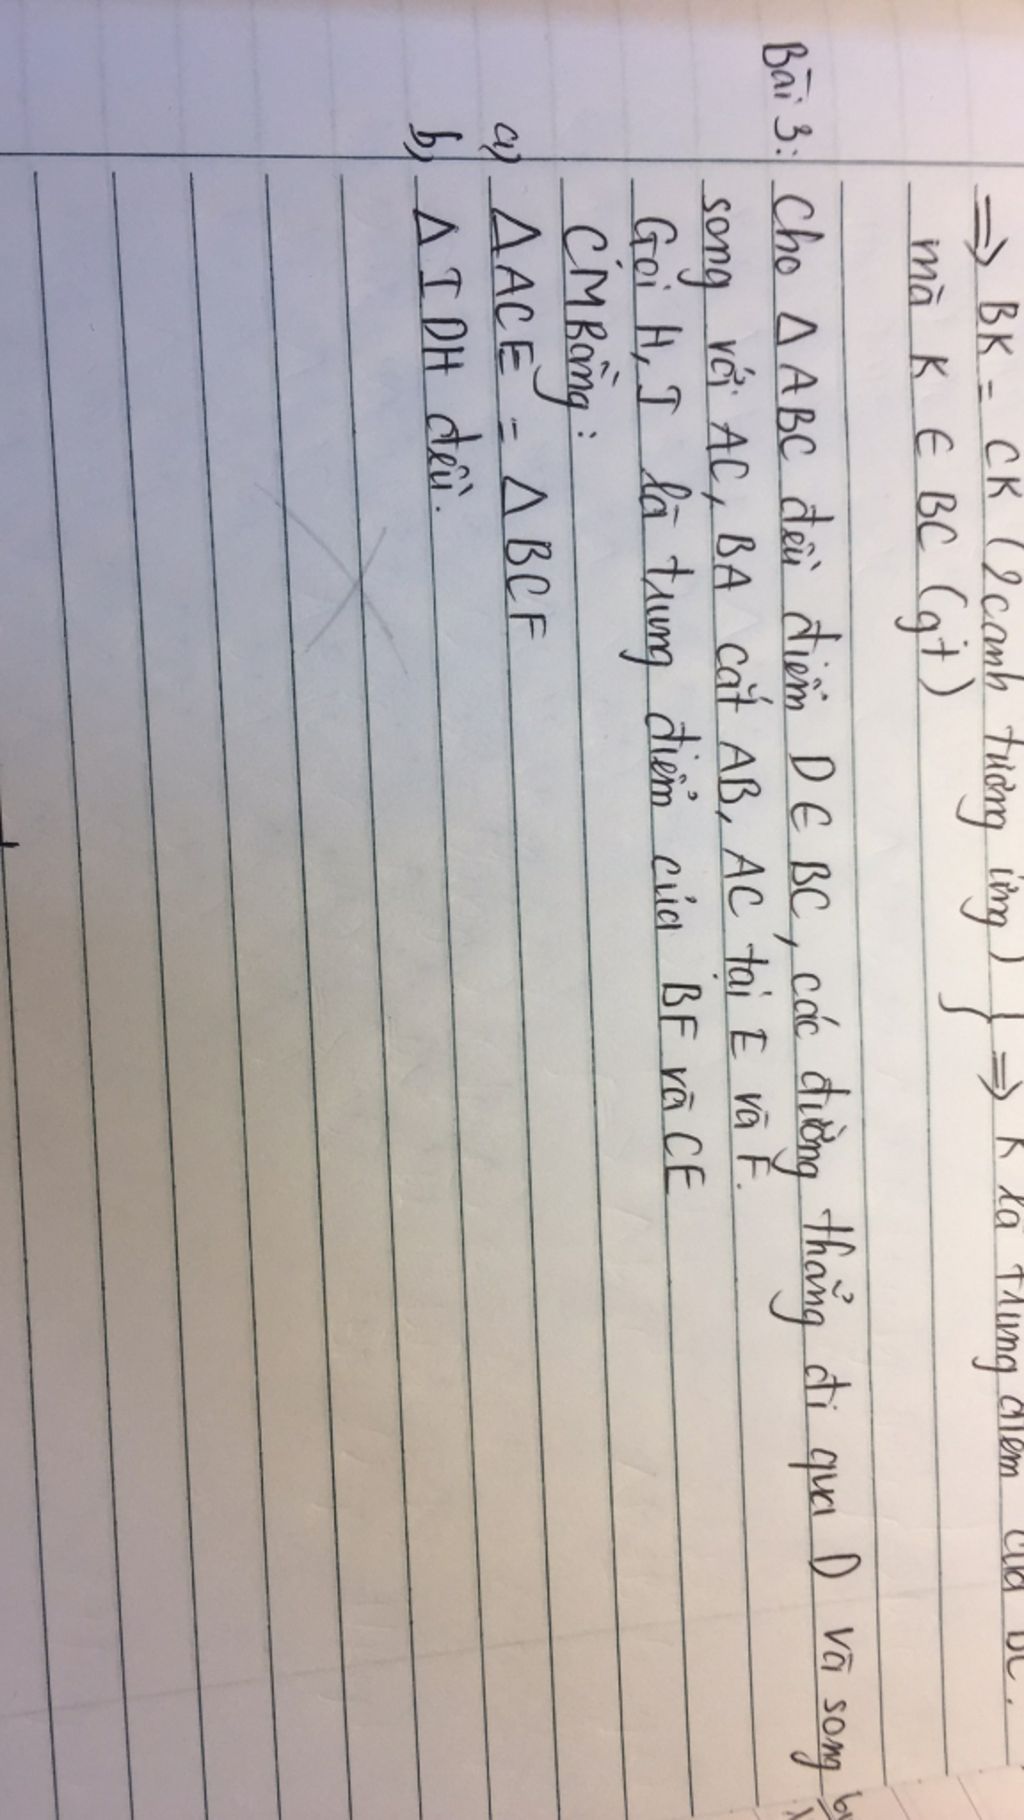 => BK = CK (2 cạnh tương ứng) } => K là trung điểm của BC.
mà K ∈ BC (gt)
Bài 3: Cho Δ ABC đều điểm D ∈ BC, các đường thẳng đi qua D và song
song với AC, BA cắt AB, AC tại E và F.
Gọi H, I là trung điểm của BF và CE
CMRằng:
a) Δ ACE = Δ BCF
b) Δ IDH đều.